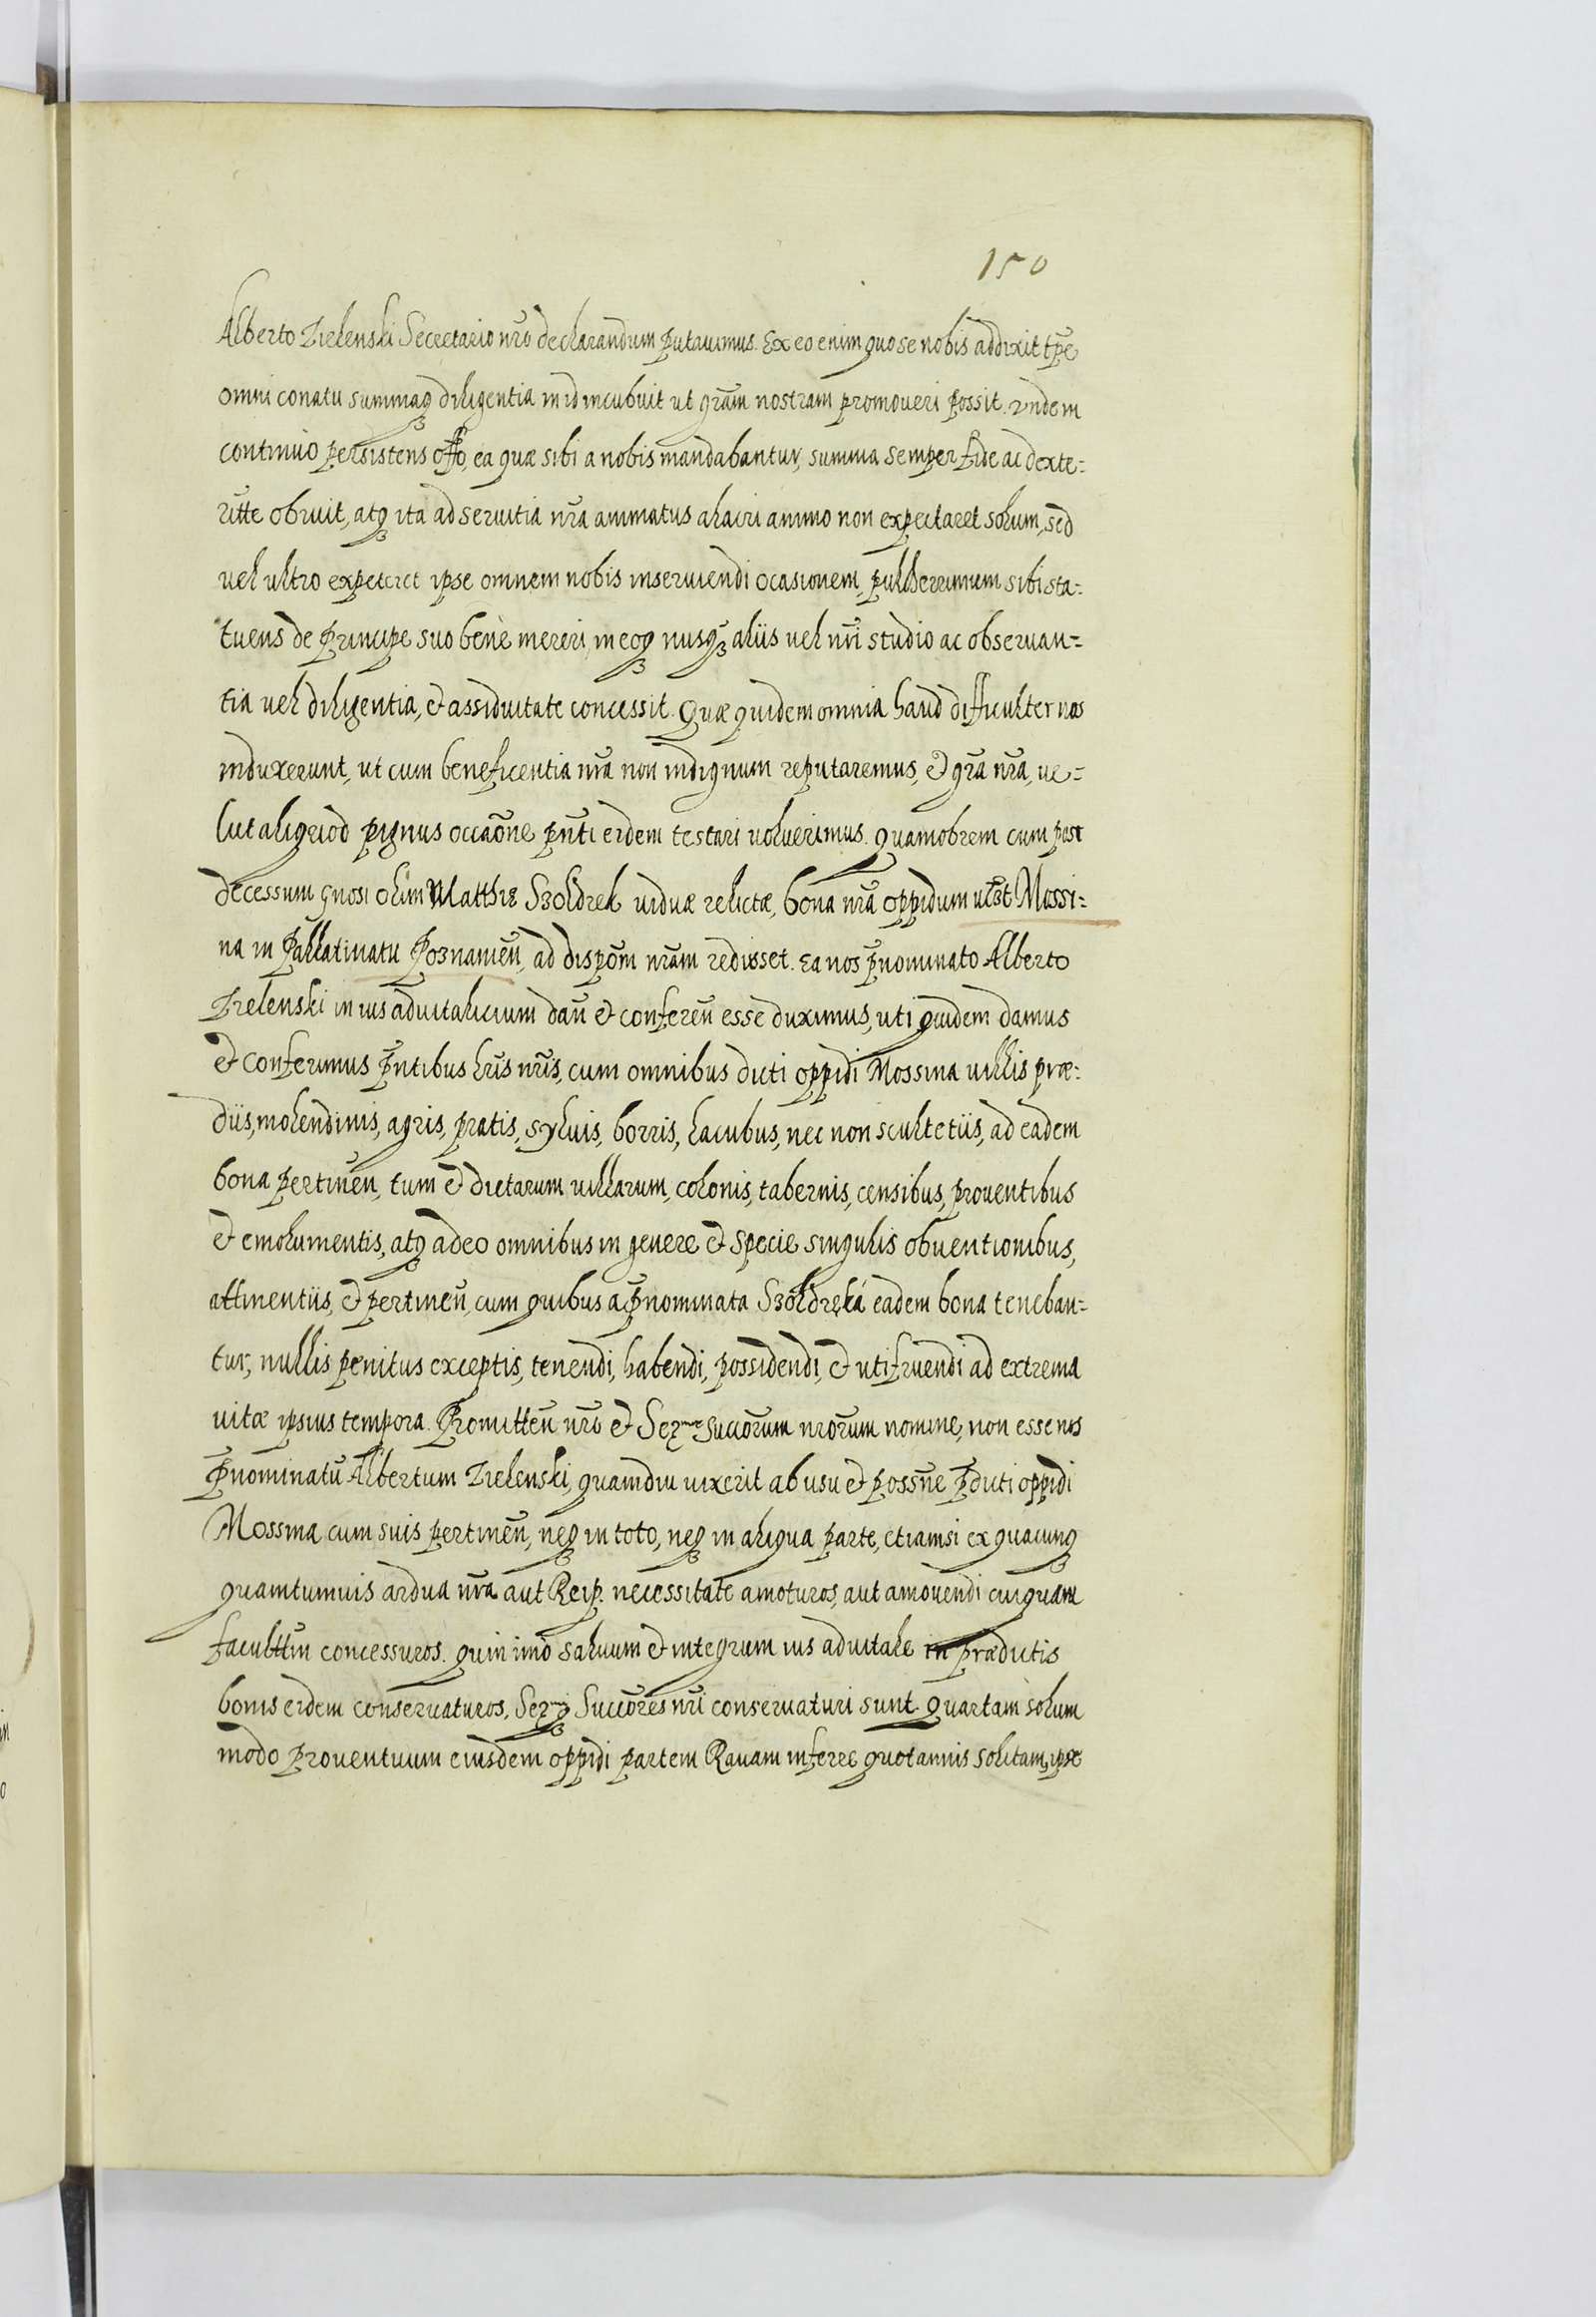 150
Alberto Zielenski Secretario nr̃o declarandum putauimus. Ex eo enim quo se nobis addixit tp̃e
omni conatu summaq diligentia in id incubuit ut gr̃am nostram promoueri possit. Vndem
continuo persistens offo, ea quæ sibi a nobis mandabantur, summa semper fide ac dexte=
ritt̃e obiuit, atq ita ad seruitia nr̃a animatus alacri animo non expectaret solum, sed
uel ultro expeteret ipse omnem nobis inseruiendi ocasionem, pulcherrimum sibi sta=
tuens de Principe suo benè mereri, in eoq nusq̃ aliis uel nr̃i studio ac obseruan=
tia uel diligentia, et assiduitate concessit. Quæ quidem omnia haud difficulter nos
induxerunt, ut cum beneficentia nr̃a non indignum reputaremus, et gr̃a nr̃a, ue=
lut aliquod pignus occaõne pñti eidem testari uoluerimus. quamobrem cum post
decessum gnosi olim Matthiæ Szoldrek uiduæ relictæ, bona nr̃a oppidum Mossi=
na in Pallatinatu Poznanieñ, ad dispõm nr̃am redisset. Ea nos p̃nominato Alberto
Zielenski in ius aduitalicium dañ et confereñ esse duximus, uti quidem damus
et conferimus p̃ntibus lr̃is nr̃is, cum omnibus dicti oppidi Mossina uillis præ=
diis, molendinis, agris, pratis, syluis, borris, lacubus, nec non scultetiis, ad eadem
bona pertineñ, tum et dictarum uillarum, colonis, tabernis, censibus, prouentibus
et emolumentis, atq adeo omnibus in genere et specie singulis obuentionibus,
attinentiis, et pertineñ, cum quibus a p̃nominata Szoldrská eadem bona teneban=
tur, nullis penitus exceptis, tenendi, habendi, possidendi, et utifruendi ad extrema
uitæ ipsius tempora. Promitteñ nr̃o et Ser.mor Succõrum nrõrum nomine, non esse nos
p̃nominatũ Albertum Zielenski, quamdiu uixerit ab usu et possñe p̃dicti oppidi
Mossina cum suis pertineñ, neq in toto, neq in aliqua parte, etiamsi ex quacunq
quamtumuis ardua nr̃a aut Reip. necessitate amoturos, aut amouendi cuiquam
facultt̃m concessuros. quin imò saluum et integrum ius aduitale in prædictis
bonis eidem conseruaturos, Ser.miq Succõres nr̃i conseruaturi sunt. Quartam solum
modo prouentuum eiusdem oppidi partem Rauam inferre quotannis solitam, ipse